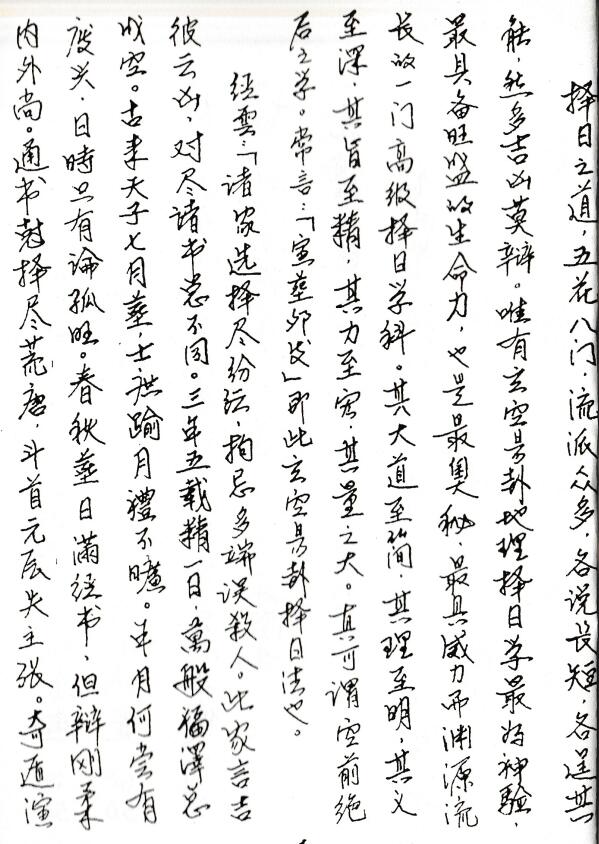 择日之道，五花八门，流派众多，各说长短，各逞其
能，然多吉凶莫辩。唯有玄空易卦地理择日学最好神驗，
最具备旺盛的生命力，也是最奥秘，最具威力而渊源流
长的一门高级择日学科。其大道至简，其理至明，其义
至深，其旨至精，其力至宏，其量之大。真可谓空前绝
后之学。常言：「宣葬邻发」即此玄空易卦择日法也。
经雲：「诸家选择尽纷纭，拘忌多端误殺人。此家言吉
彼云凶，对尽诸书总不同。三年五载精一日，萬般福泽总
成空。古来天子七月葬，士庶踰月禮不曠。年月何尝有
废兴，日時只有論孤旺。春秋葬日满经书，但辩刚柔
内外尚。通书尅择尽荒唐，斗首元辰失主张。奇遁演